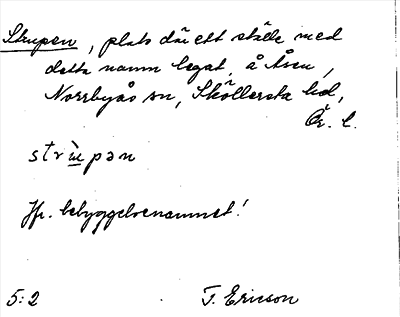 Strupen, plats där ett ställe med
detta namn legat, å Åsen,
Norrbyås sn, Sköllersta hd,
Ör. l.
strɯ̀pən
Jfr. bebyggelsenamnet!
5:2 T. Ericson